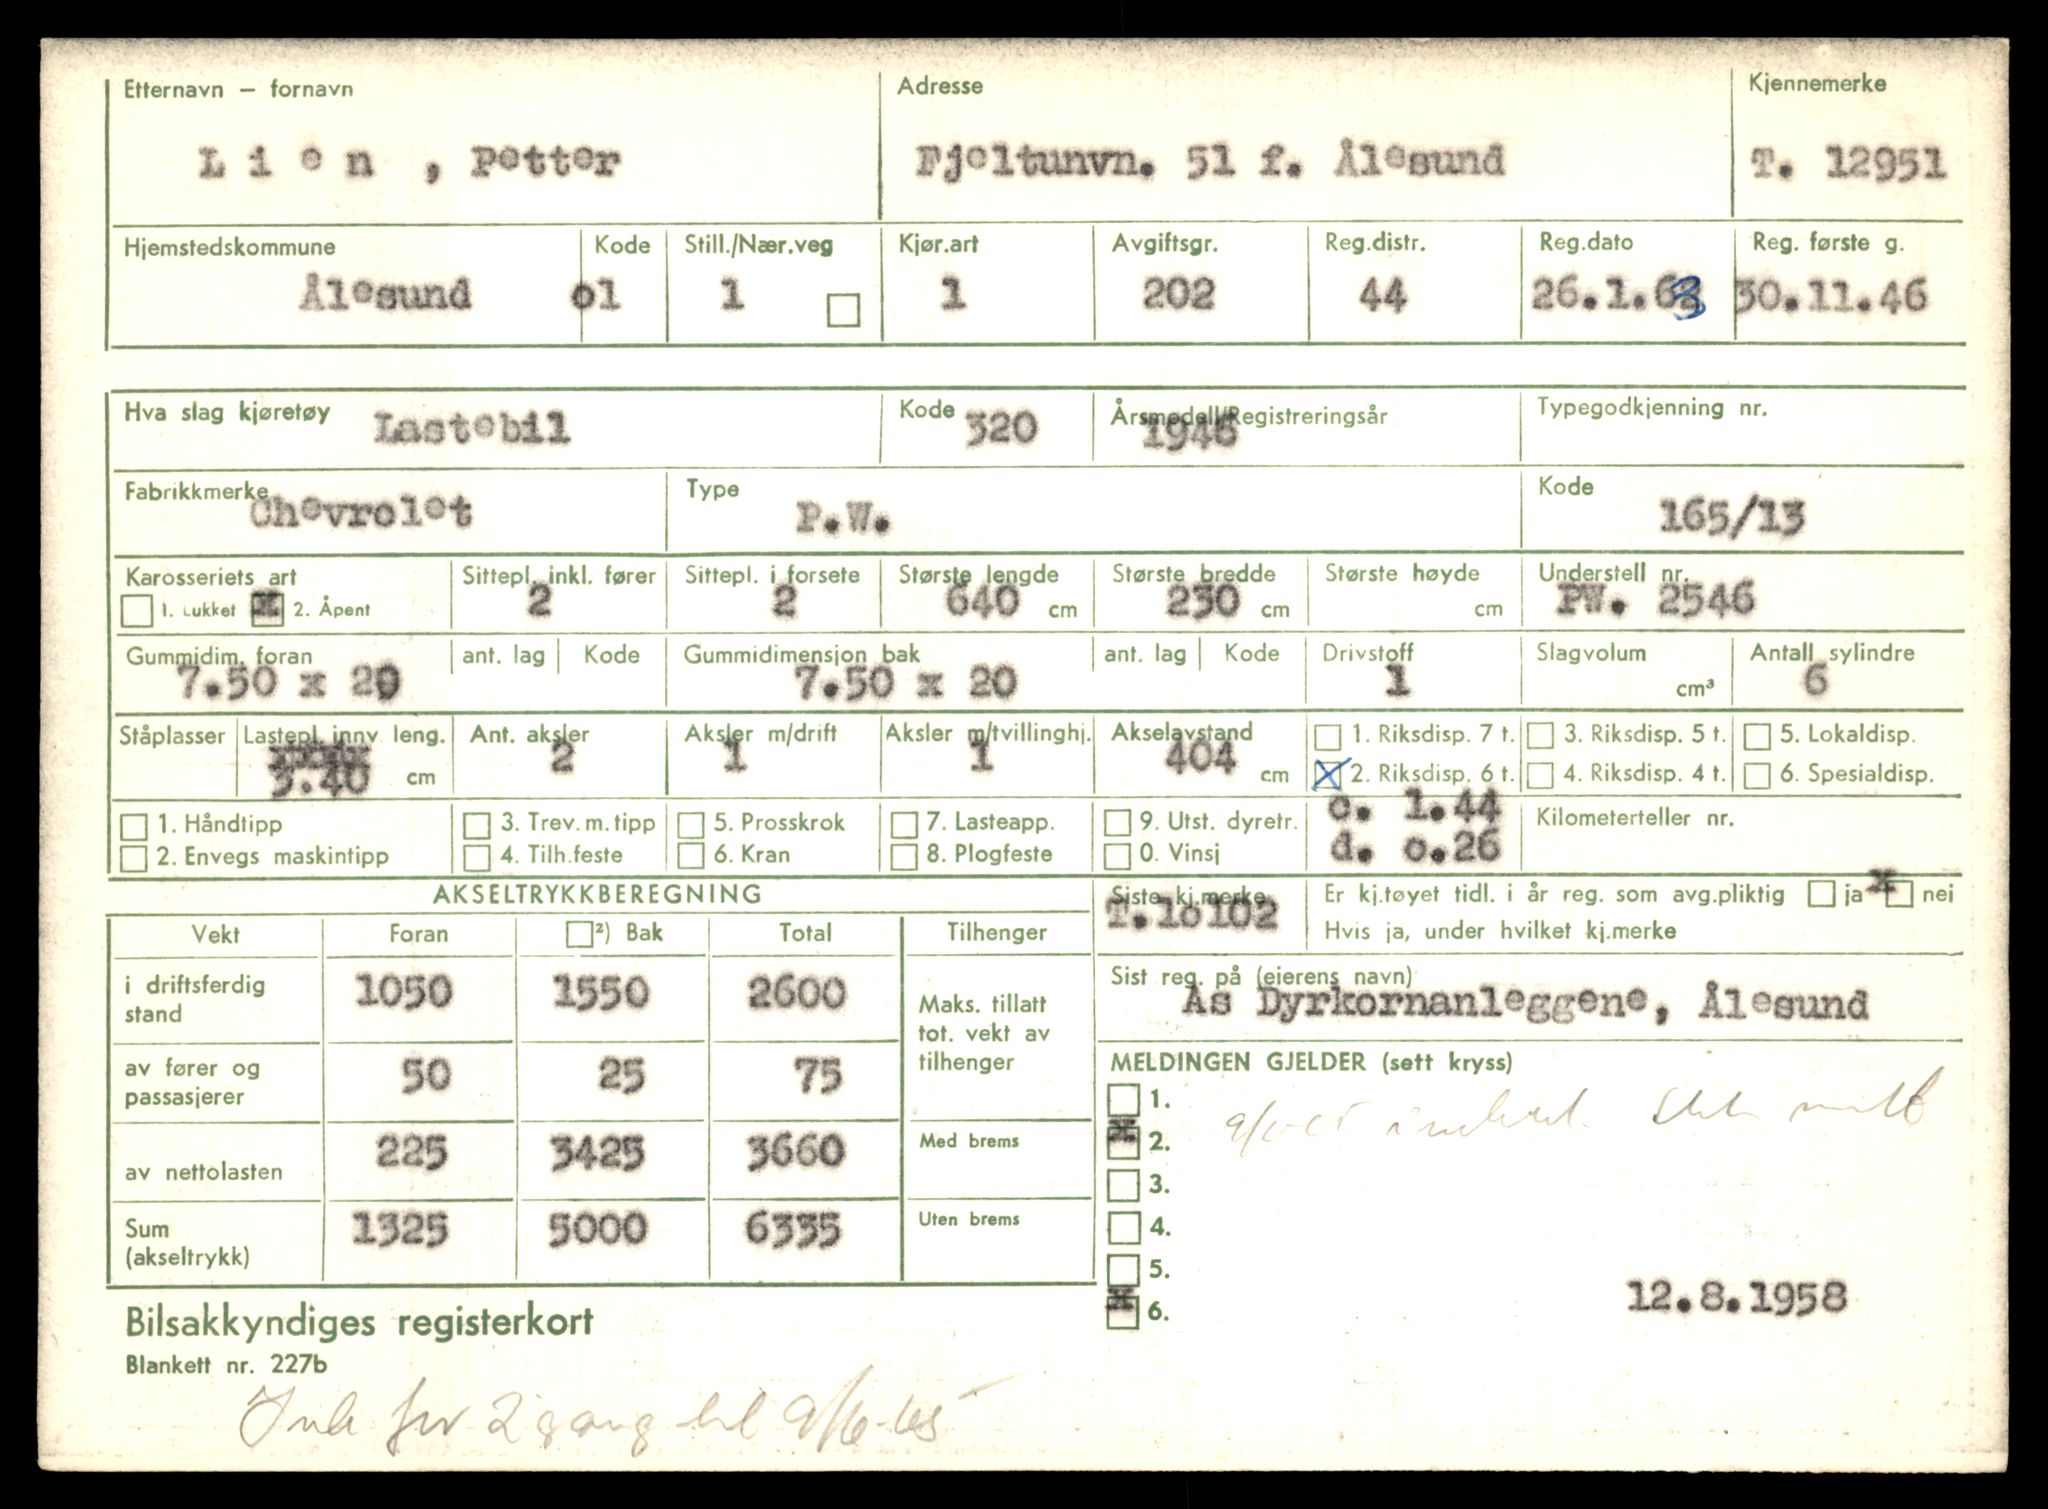 Etternavn – fornavn Adresse Kjennemerke
L i e n , Petter Fjeltunvn. 51 f. Ålesund T. 12951
Hjemstedskommune Kode Still./Nær.veg Kjør.art Avgiftsgr. Reg.distr. Reg.dato Reg. første g.
Ålesund o1 1 1 202 44 26.1.63 30.11.46
Hva slag kjøretøy Lastebil Kode 320 Årsmodell/Registreringsår 1946 Typegodkjenning nr.
Fabrikkmerke Type Kode
Chevrolet P.W. 165/13
Karosseriets art Sittepl. inkl. fører Sittepl. i forsete Største lengde Største bredde Største høyde Understell nr.
1. Lukket x 2. Åpent 2 2 640 cm 230 cm cm PW. 2546
Gummidim. foran ant. lag Kode Gummidimensjon bak ant. lag Kode Drivstoff Slagvolum Antall sylindre
7.50 x 20 7.50 x 20 1 cm³ 6
Ståplasser Lastepl. innv. leng. Ant. aksler Aksler m/drift Aksler m/tvillinghj. Akselavstand 1. Riksdisp. 7 t. 3. Riksdisp. 5 t. 5. Lokaldisp.
3.40 cm 2 1 1 404 cm X 2. Riksdisp. 6 t. 4. Riksdisp. 4 t. 6. Spesialdisp.
1. Håndtipp 3. Trev. m. tipp 5. Prosskrok 7. Lasteapp. 9. Utst. dyretr. c. 1.44 Kilometerteller nr.
2. Envegs maskintipp 4. Tilh.feste 6. Kran 8. Plogfeste 0. Vinsj d. o.26
AKSELTRYKKBEREGNING Siste kj.merke Er kj.tøyet tidl. i år reg. som avg.pliktig ja x nei
T.16102
Vekt Foran ²) Bak Total Tilhenger Hvis ja, under hvilket kj.merke
i driftsferdig stand 1050 1550 2600 Maks. tillatt tot. vekt av tilhenger
Sist reg. på (eierens navn)
As Dyrkornanleggene, Ålesund
av fører og passasjerer 50 25 75
MELDINGEN GJELDER (sett kryss)
1.
x 2.
av nettolasten 225 3425 3660 Med brems
3.
Sum (akseltrykk) 1325 5000 6335 Uten brems
4.
5.
x 6. 12.8.1958
Bilsakkyndiges registerkort
Blankett nr. 227b
for 2 gang til 9/6-65